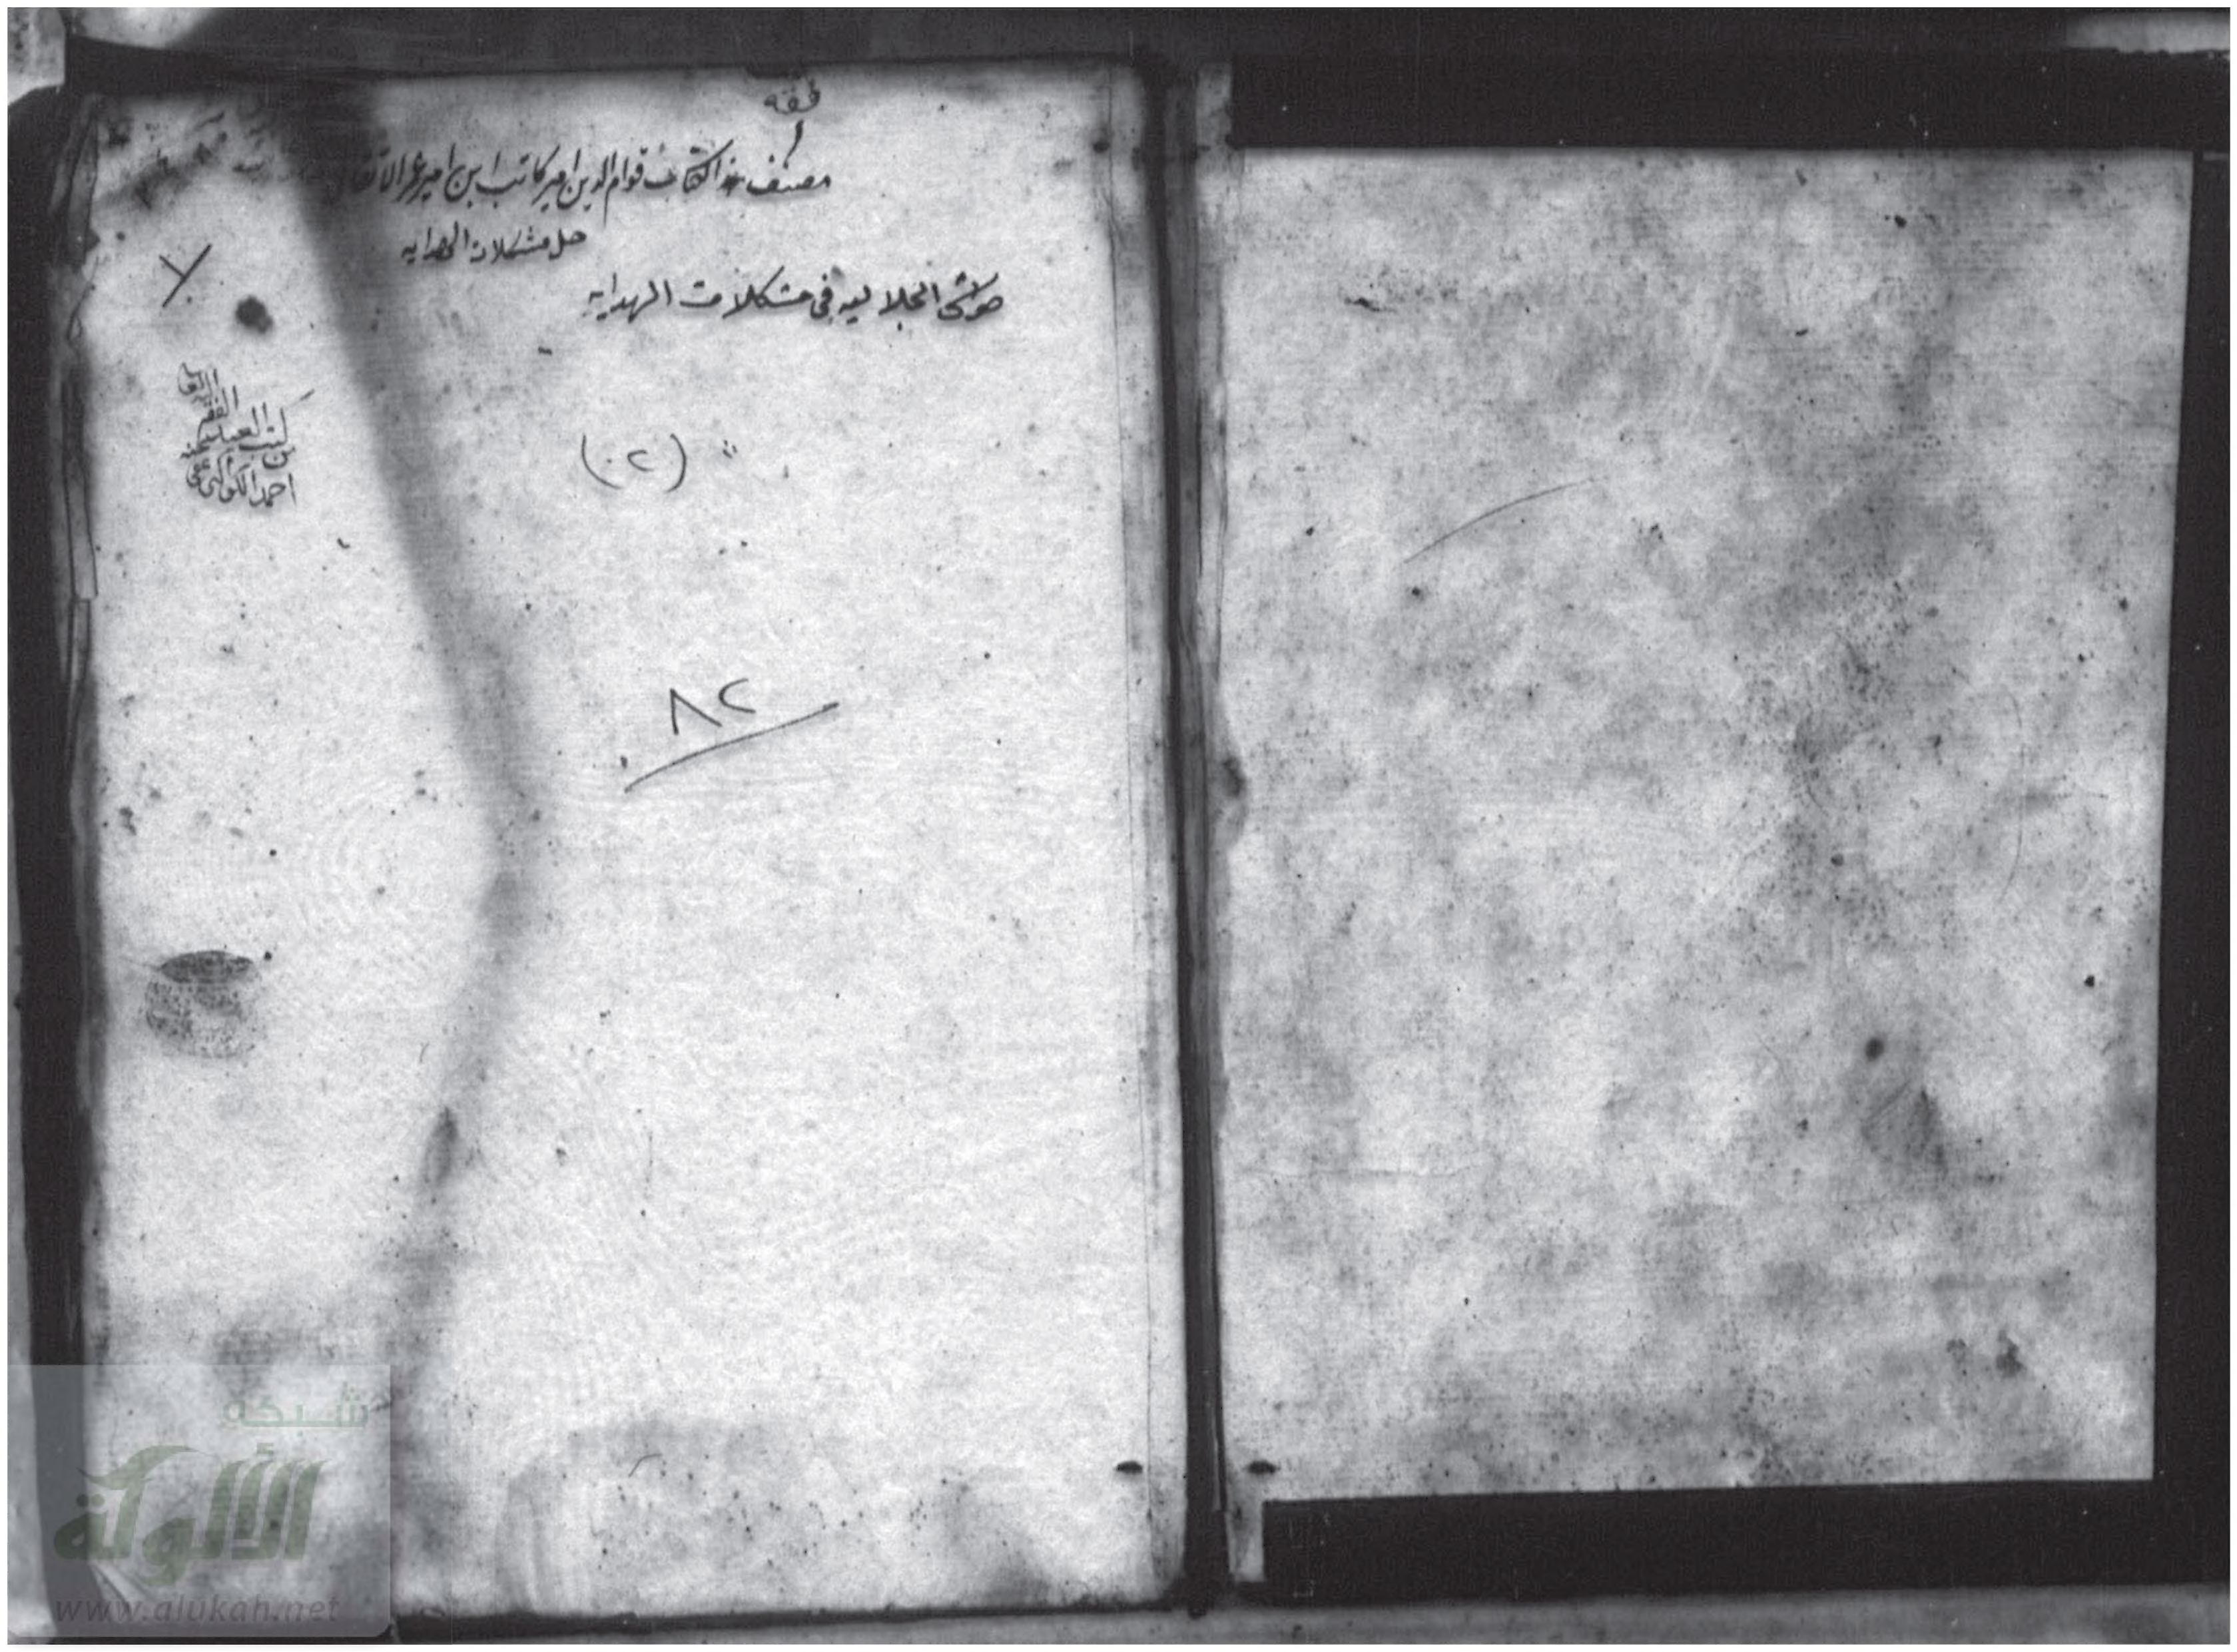 فقه
١
مصنف هذا الكتاب قوام الدين امير كاتب ابن امير عمر الاتقا
حل مشكلات الهدايه
حواشى الجلاليه فى مشكلات الهدايه
من كتب العبد الفقير
احمد الكواكبى عفى عنه
(٠٢)
٨٢
شبكة
الألوكة
www.alukah.net